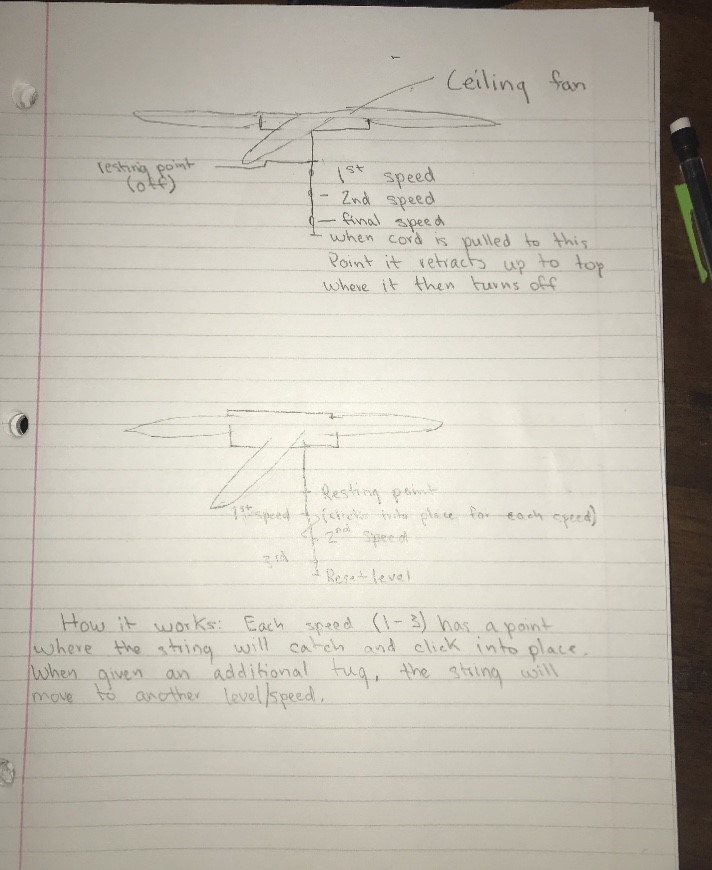 Ceiling fan
resting point
(off)
1st speed
- 2nd speed
- final speed
- when cord is pulled to this
Point it retracts up to top
where it then turns off
- Resting point
1st speed (clicks into place for each speed)
2nd Speed
3rd
- Reset level
How it works: Each speed (1-3) has a point
where the string will catch and click into place.
When given an additional tug, the string will
move to another level/speed.